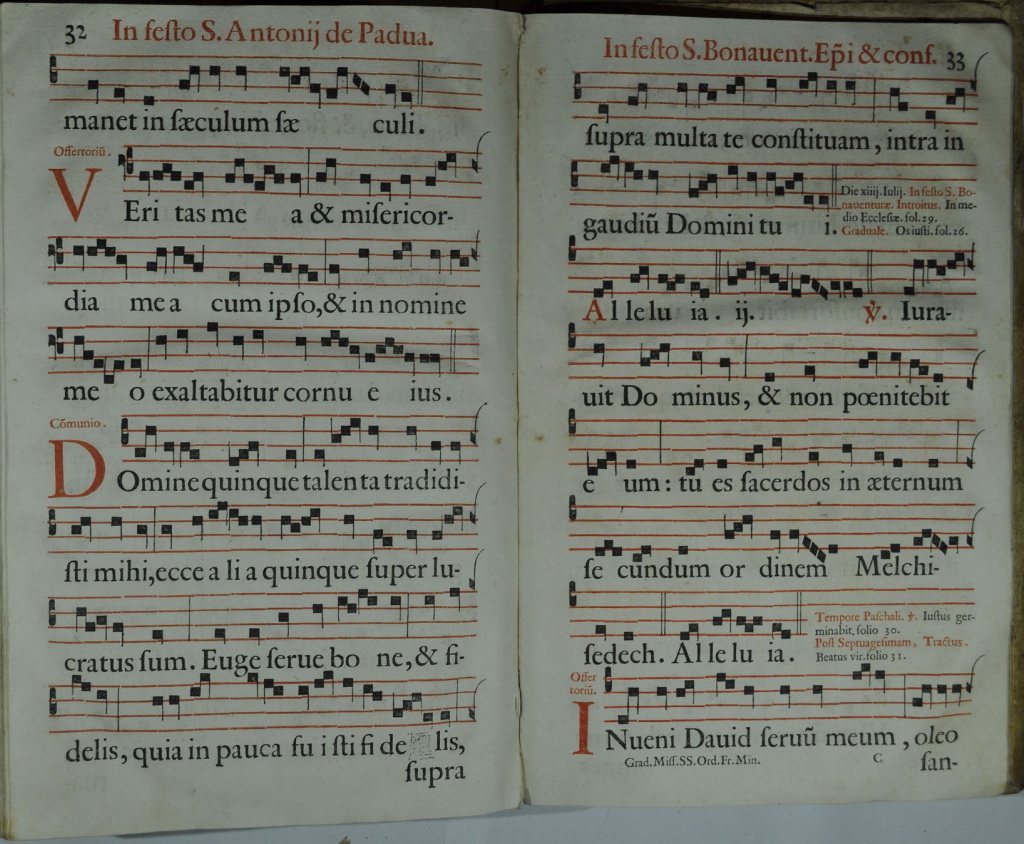 32 In feſto S. Antonij de Padua.
manet in ſæculum ſæ culi.
Offertoriū.
VEri tas me a & miſericor-
dia me a cum ipſo, & in nomine
me o exaltabitur cornu e ius.
Cōmunio.
DOmine quinque talen ta tradidi-
ſti mihi, ecce a li a quinque ſuper lu-
cratus ſum. Euge ſerue bo ne, & fi-
delis, quia in pauca fu i ſti fi de lis,
ſupra
In feſto S. Bonauent. Ep̃i & conf. 33
ſupra multa te conſtituam, intra in
gaudiū Domini tu i.
Die xiiij. Iulij. In feſto S. Bo-
nauenturæ. Introitus. In me-
dio Eccleſiæ. fol. 29.
Graduale. Os iuſti. fol. 26.
Al le lu ia. ij. ℣. Iura-
uit Do minus, & non pœnitebit
e um: tu es ſacerdos in æternum
ſe cundum or dinem Melchi-
ſedech. Al le lu ia.
Tempore Paſchali. ℣. Iuſtus ger-
minabit, folio 30.
Poſt Septuageſimam, Tractus.
Beatus vir. folio 31.
Offer
toriū.
INueni Dauid ſeruū meum, oleo
Grad. Miſſ. SS. Ord. Fr. Min. C ſan-